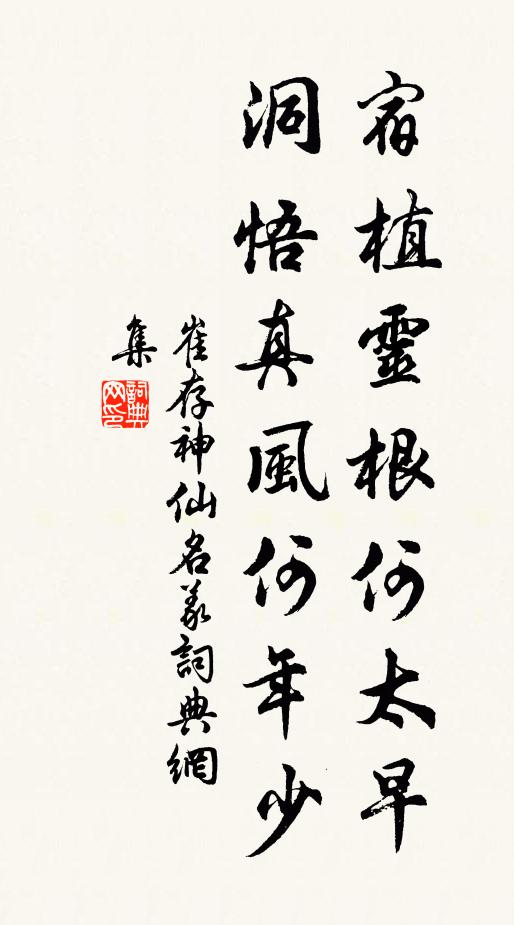 宿植靈根何太早
洞悟真風何年少
崔存神仙名義詞典網
集
詞典網印